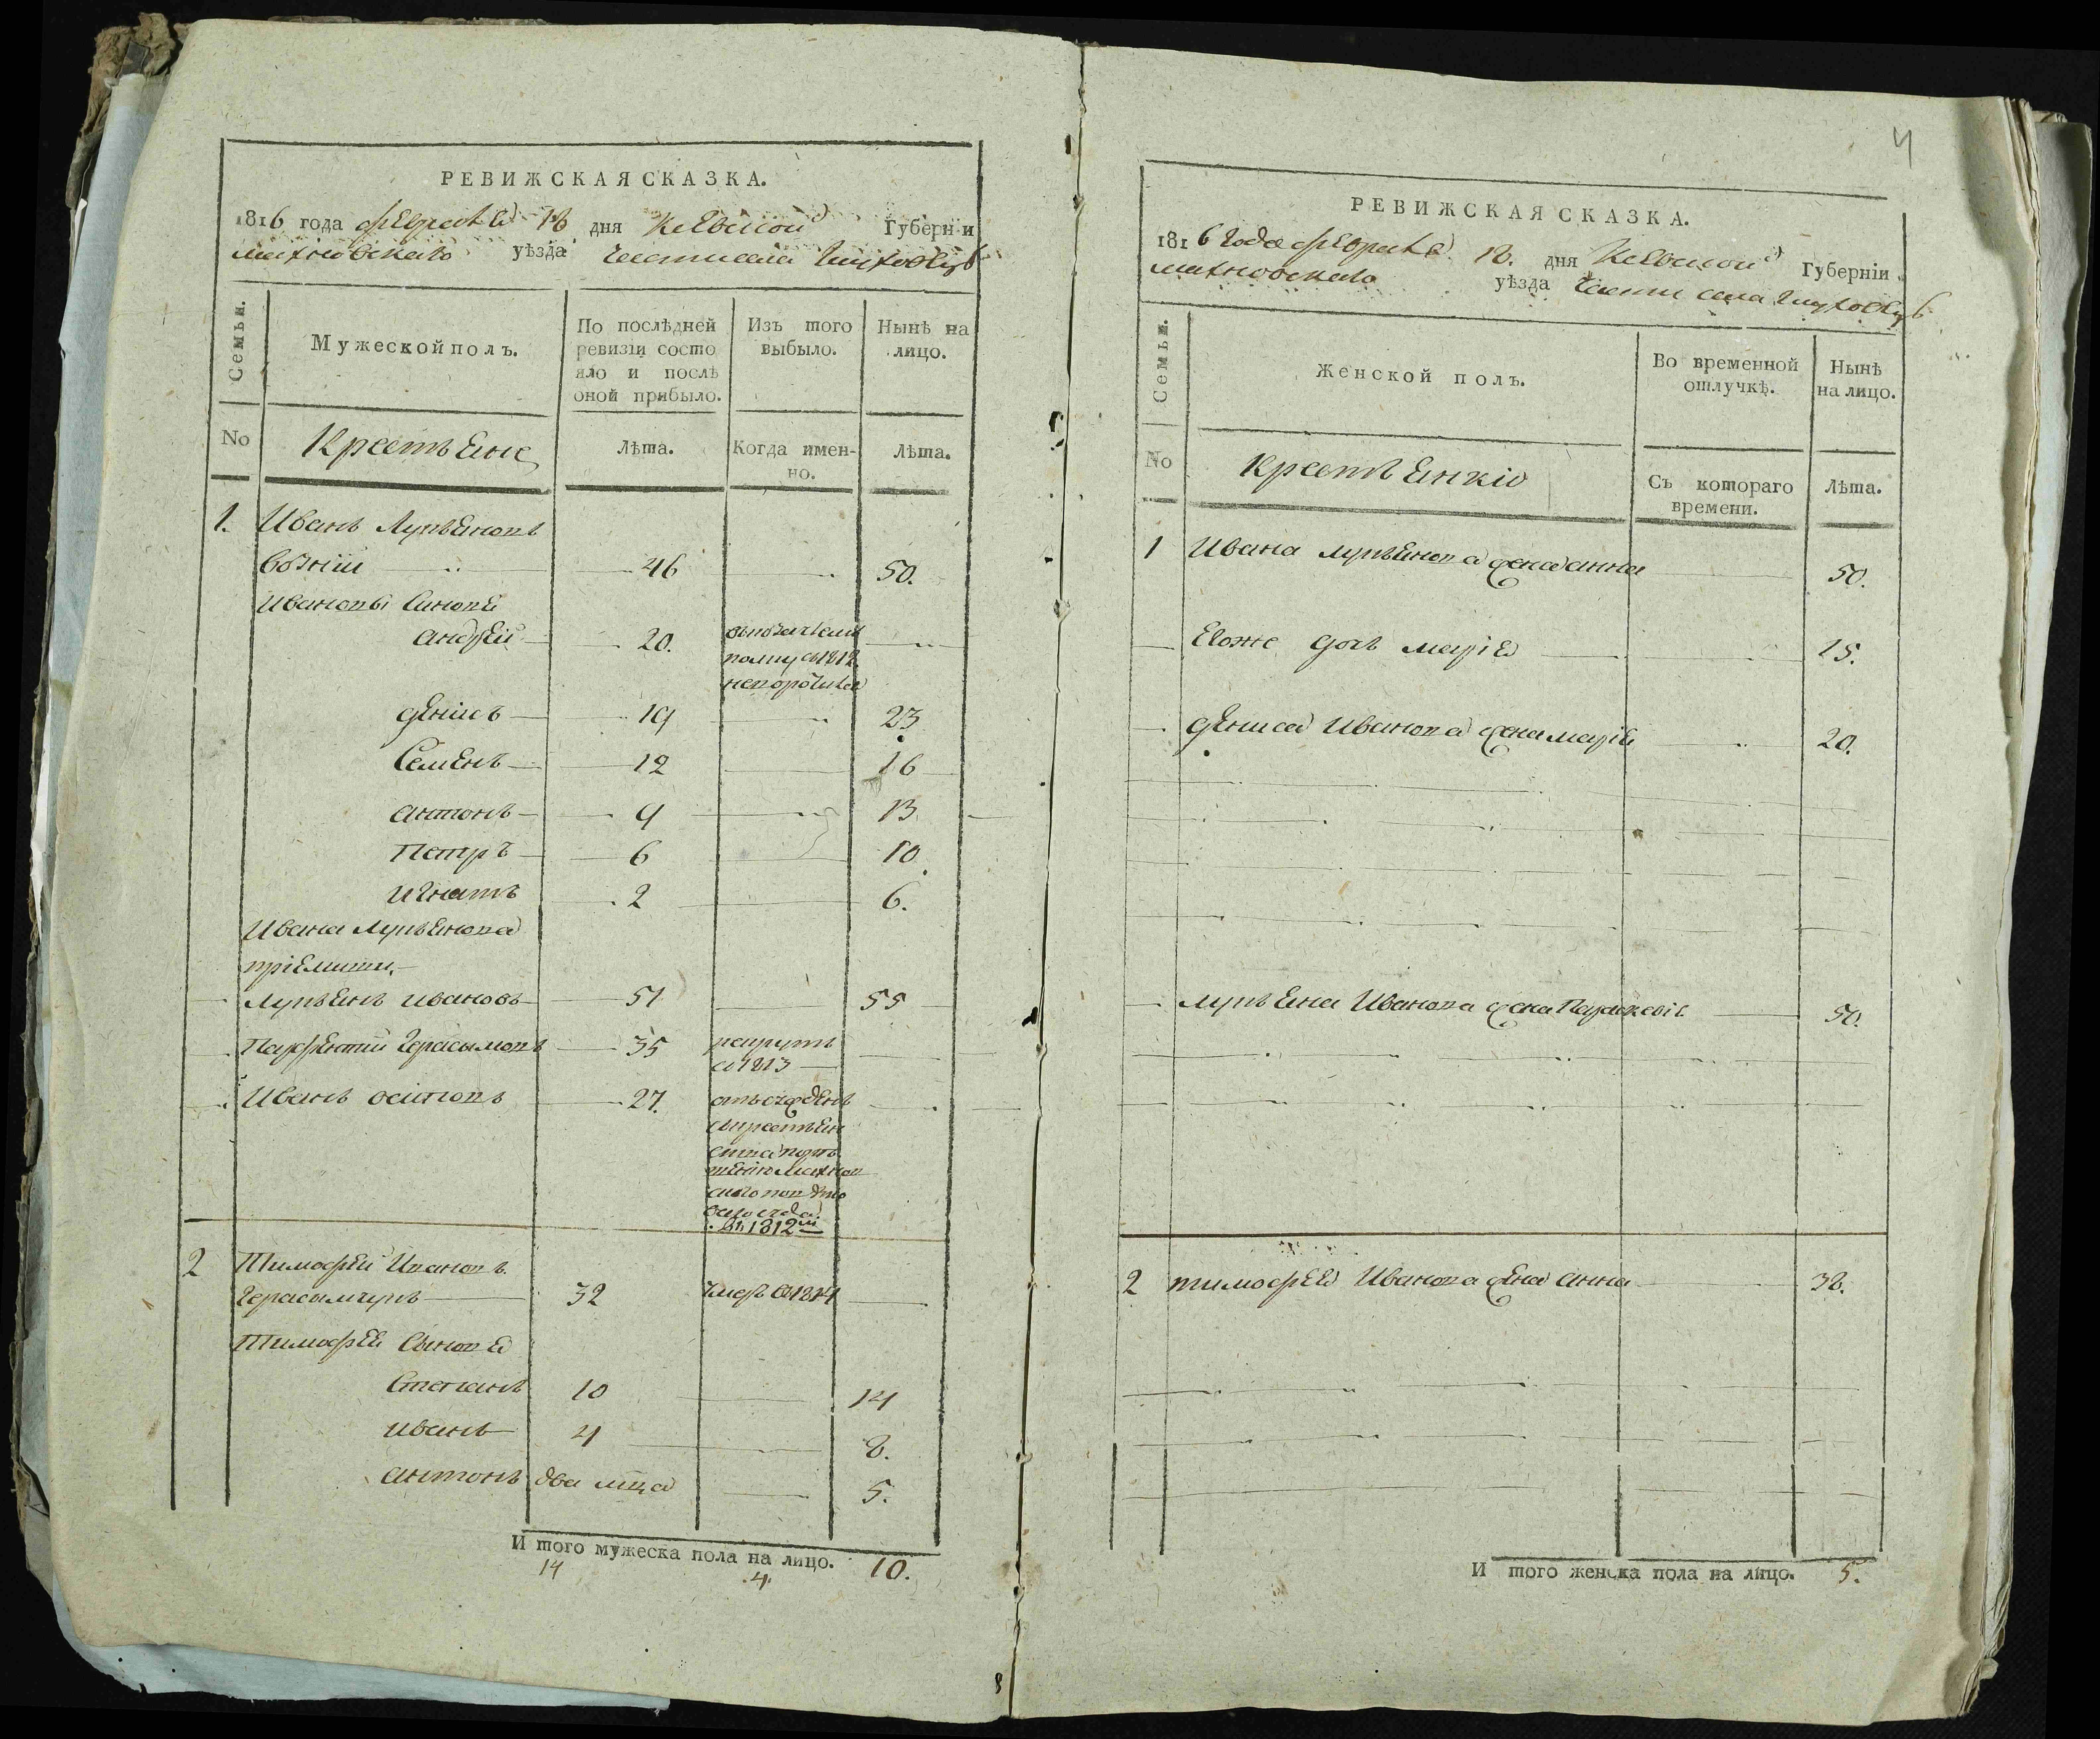 РЕВИЖСКАЯ СКАЗКА.
1816 года февраля 18 дня Киевской Губерніи
махновскаго уѣзда части села
Семьи.
Мужеской полъ.
По послѣдней ревизіи состо
яло и послѣ
оной прибыло.
Изъ того выбыло.
Нынѣ на лицо.
No
Крестьяне
Лѣта.
Когда имен-
но.
Лѣта.
1. Иванъ Лукьяновъ
возній 46 50.
Ивановы Синовя
андрей 20.
денисъ 19 23
Семенъ 12 16
антонъ 9 13
Петръ 6 10
Игнатъ 2 6.
Ивана Лукьянова
пріемиши
Лукьянъ Ивановъ 51 55
Парфентій Герасымовъ 35 рекрутъ
въ 1813
Иванъ осіповъ 27.
въ 1812м
2 Тимофей Ивановъ
Герасымчукъ 32 умеръ въ 1814
Тимофея Сыновя
Степанъ 10 14
иванъ 4 8.
антонъ два мца 5.
И того мужеска пола на лицо. 10.
14 4.
4
РЕВИЖСКАЯ СКАЗКА.
1816 года февраля 18. дня Киевской Губерніи
махновскаго уѣзда части села
Семьи.
Женской полъ.
Во временной отлучкѣ.
Нынѣ на лицо.
No
крестьянкіо
Съ котораго
времени.
Лѣта.
1 Ивана лукьянова жена анна 50.
Егоже дочь марія 15.
дениса Иванова жена марія 20.
лукьяна Иванова жена Параскевія 50.
2 тимофея Иванова жена анна 38.
И того женска пола на лицо. 5.